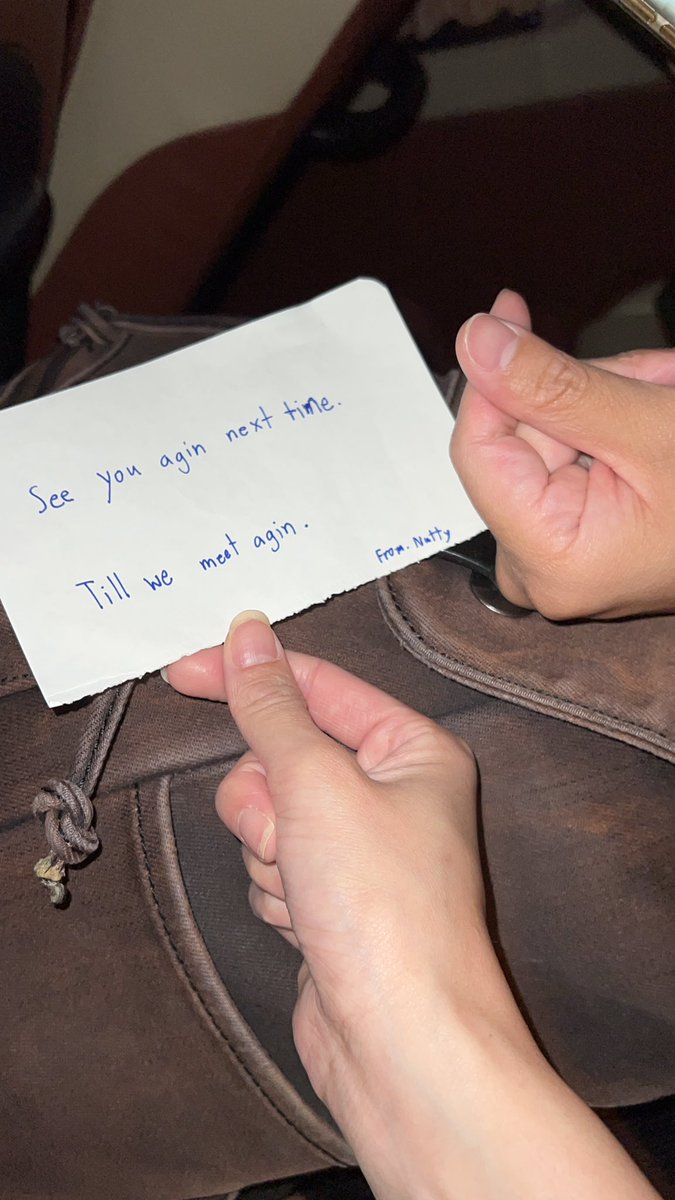 See you agin next time.
Till we meet agin.
From. Nutty